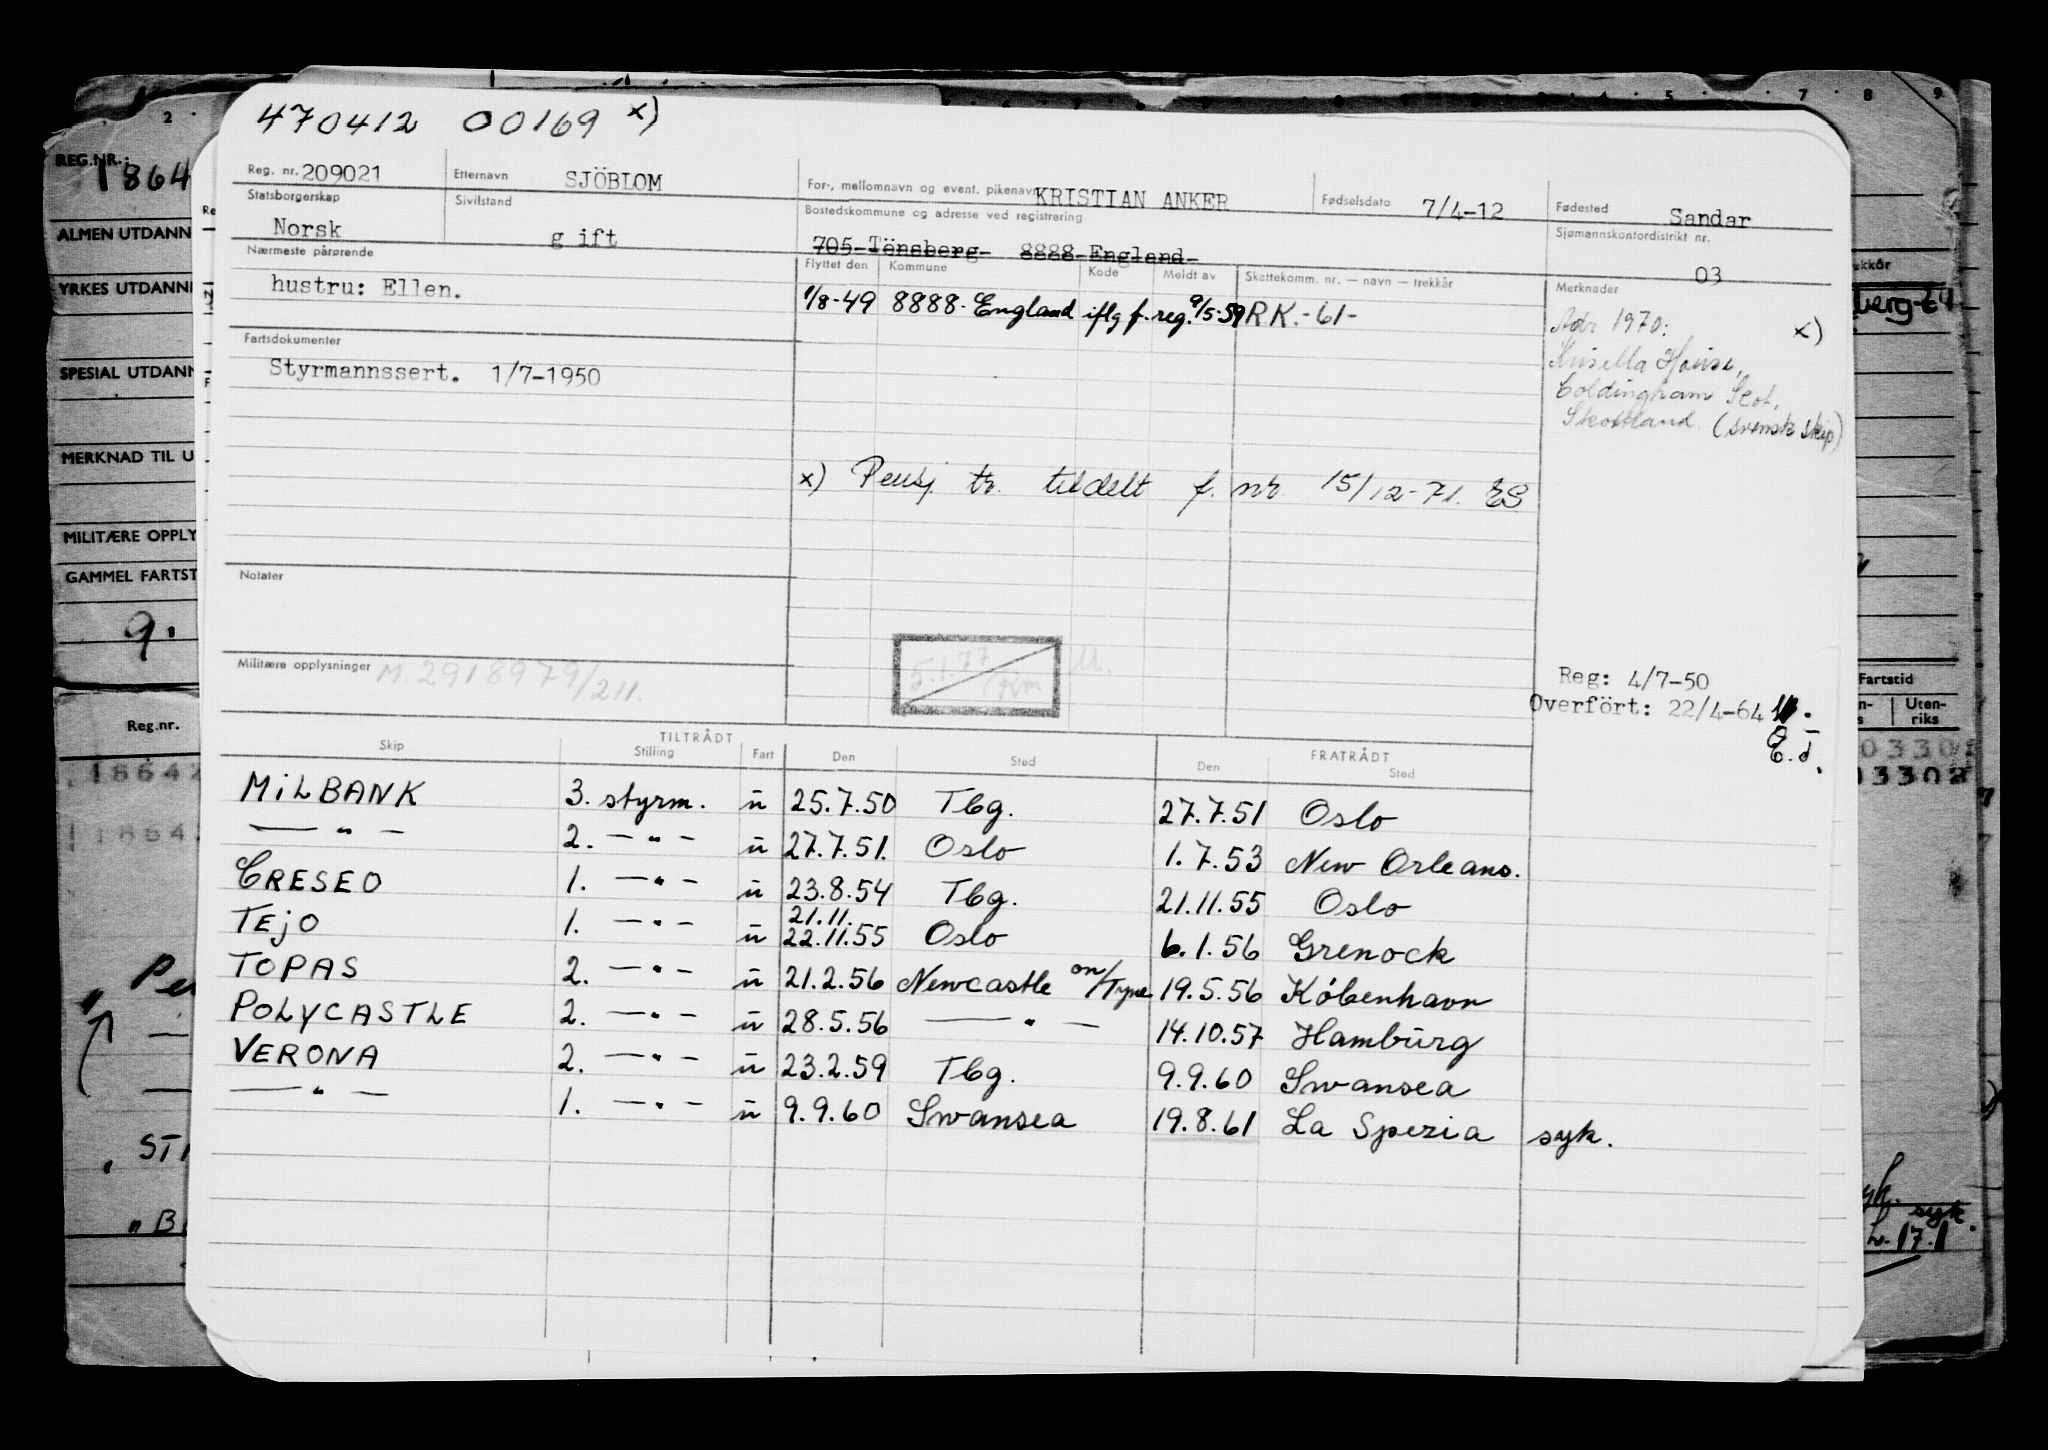 470412 00169 x)
REG.NR.: 1864
Reg. nr. 209021 Etternavn SJÖBLOM For-, mellomnavn og event. pikenavn KRISTIAN ANKER Fødselsdato 7/4-12 Fødested Sandar
Statsborgerskap Norsk Sivilstand gift Bostedskommune og adresse ved registrering 705-Tönsberg- 8888-England- Sjømannskontordistrikt nr. 03
Nærmeste pårørende Flyttet den Kommune Kode Meldt av Skattekomm. nr. — navn — trekkår Merknader
hustru: Ellen. 1/8-49 8888- England iflg f. reg. 9/5-59 RK.-61-
Adr 1970: x)
House,
Coldingham
Skottland (svensk skip)
Fartsdokumenter
Styrmannssert. 1/7-1950
x) Pensj. tr. tildelt f. nr. 15/12-71. ES
Notater
Militære opplysninger M. 2918979/211.
5.1.77
Km
Reg: 4/7-50
Overfört: 22/4-64
E.d.
TILTRÅDT FRATRÅDT
Skip Stilling Fart Den Sted Den Sted
MILBANK 3. styrm. ü 25.7.50 Tbg. 27.7.51 Oslo
— " — 2. — " — ü 27.7.51. Oslo 1.7.53 New Orleans.
CRESEO 1. — " — ü 23.8.54 Tbg. 21.11.55 Oslo
21.11.
TEjO 1. — " — ü 22.11.55 Oslo 6.1.56 Grenock
TOPAS 2. — " — ü 21.2.56 Newcastle on/Tyne 19.5.56 København
POLYCASTLE 2. — " — ü 28.5.56 — " — 14.10.57 Hamburg
VERONA 2. — " — ü 23.2.59 Tbg. 9.9.60 Swansea
— " — 1. — " — ü 9.9.60 Swansea 19.8.61 La Spezia syk.
ALMEN UTDANN
YRKES UTDANN
SPESIAL UTDANN
MERKNAD TIL U
MILITÆRE OPPLY
GAMMEL FARTST
9.
Reg.nr.
18642
1864
Pe
ST
" B
kkår
berg-
Fartstid
Uten-
riks
03302
03302
syk.
17.1